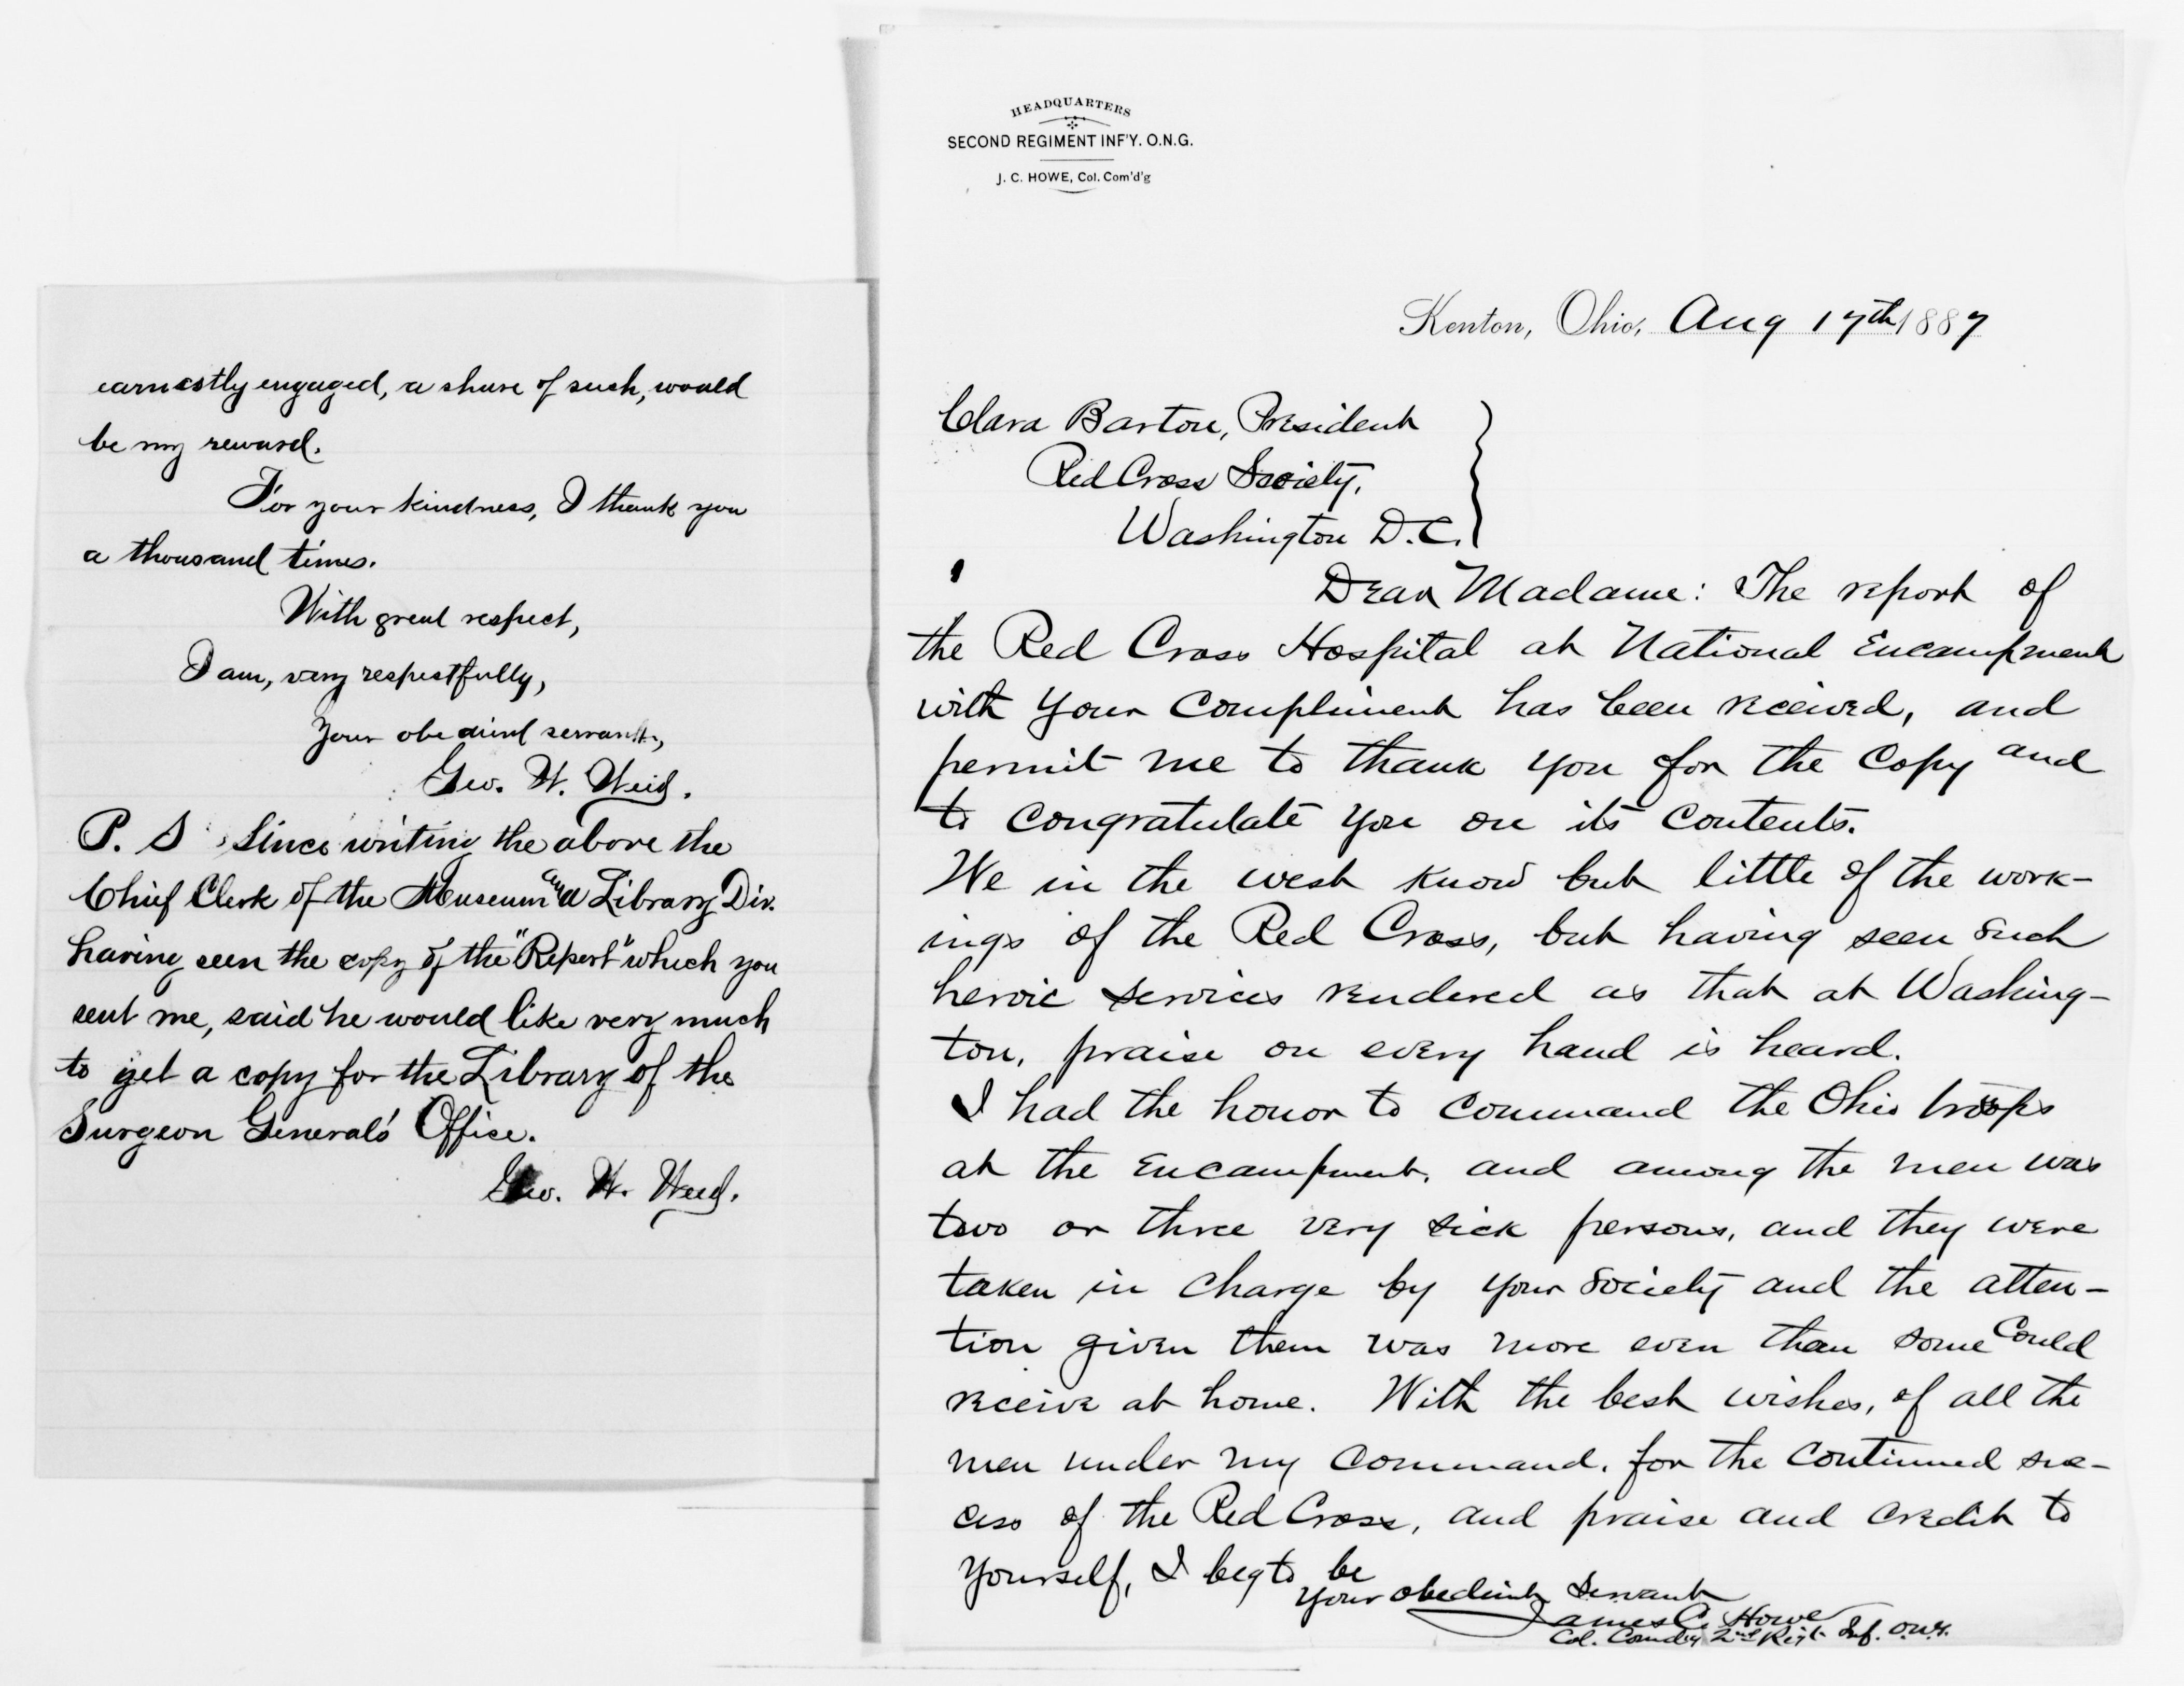 earnestly engaged, a share of such, would
be my reward.
For your kindness, I thank you
a thousand times.
With great respect,
I am, very respectfully,
Your obedient servant,
Geo. W.
P. S. Since writing the above the
Chief Clerk of the Museum and Library Div.
having seen the copy of the "Report" which you
sent me, said he would like very much
to get a copy for the Library of the
Surgeon General's Office.
Geo. W.
HEADQUARTERS
SECOND REGIMENT INF'Y. O.N.G.
J. C. HOWE, Col. Com'd'g
Kenton, Ohio, Aug 17th 1887
Clara Barton, President
Red Cross Society,
Washington D.C.
Dear Madame: The report of
the Red Cross Hospital at National Encampment
with your compliment has been received, and
permit me to thank you for the copy and
to congratulate you on its contents.
We in the west know but little of the work-
ings of the Red Cross, but having seen such
heroic services rendered as that at Washing-
ton, praise on every hand is heard.
I had the honor to command the Ohio troops
at the Encampment, and among the men was
two or three very sick persons, and they were
taken in charge by your society and the atten-
tion given them was more even than some could
receive at home. With the best wishes, of all the
men under my command, for the continued suc-
cess of the Red Cross, and praise and credit to
yourself, I beg to be
Your obedient Servant
James C. Howe
Col. Comdg 2nd Regt. Inf. O.N.G.